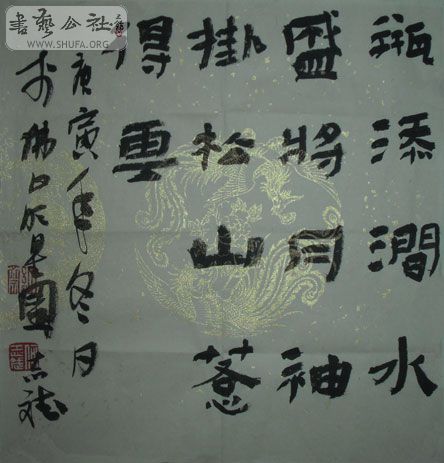 書藝公社
WWW.SHUFA.ORG
瓶添澗水
盛將月袖
掛松山惹
得雲
庚寅年冬月
於佛